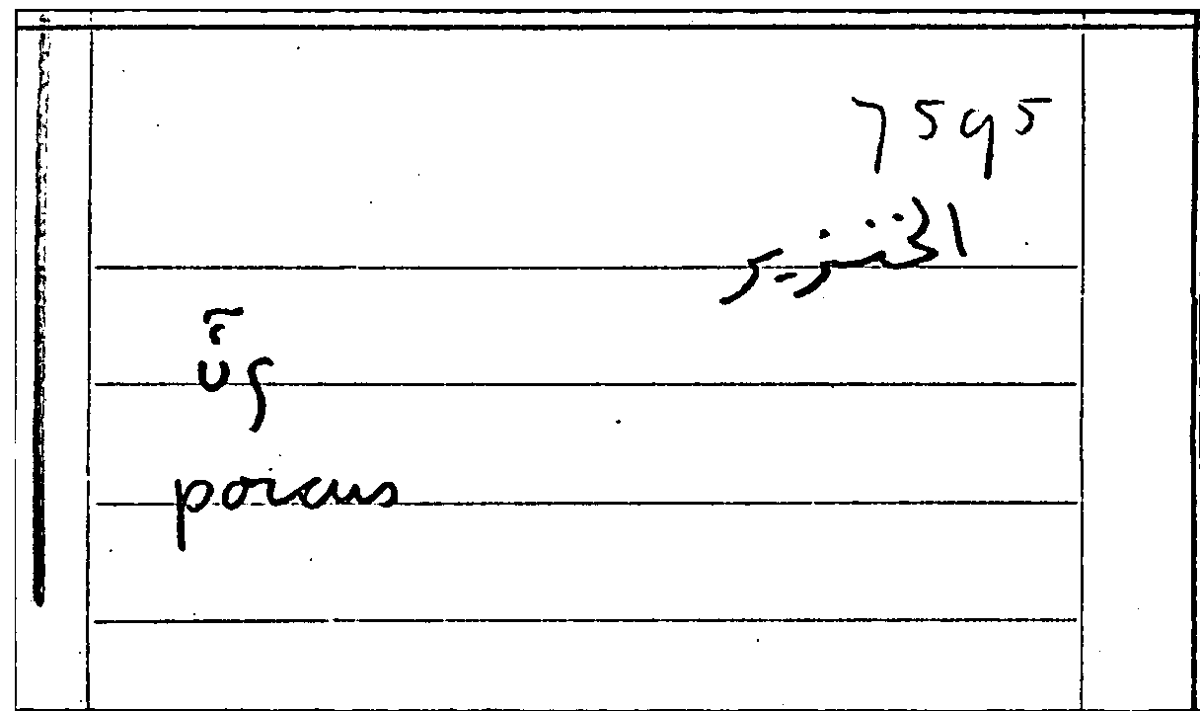 7595
الخنزير
ὗς
porcus